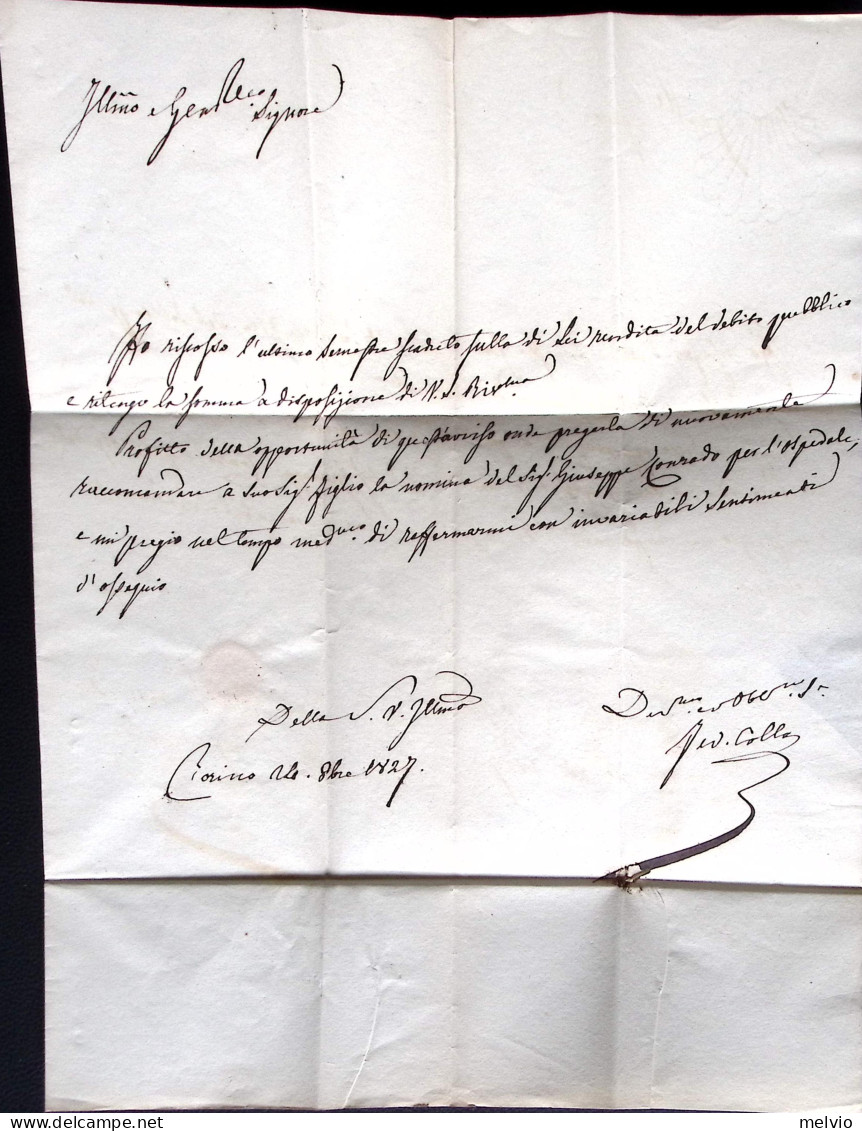 Illmo e Gen
Signore
Ho riscosso l'ultimo semestre scaduto sulla di Lei rendita del debito pubblico
e ritengo la somma a disposizione di V. S.
Profitto della opportunità di quest'avviso onde pregarla di nuovamente
raccomandare a suo Sigr figlio la nomina del Sigr Giuseppe Corrado per l'ospedale,
e mi pregio nel tempo medmo di raffermarmi con invariabili sentimenti
d'ossequio
Della S. V. Illma
Torino 24. 8bre 1827.
Devmo ed Obbmo Sr
Colla
melvio